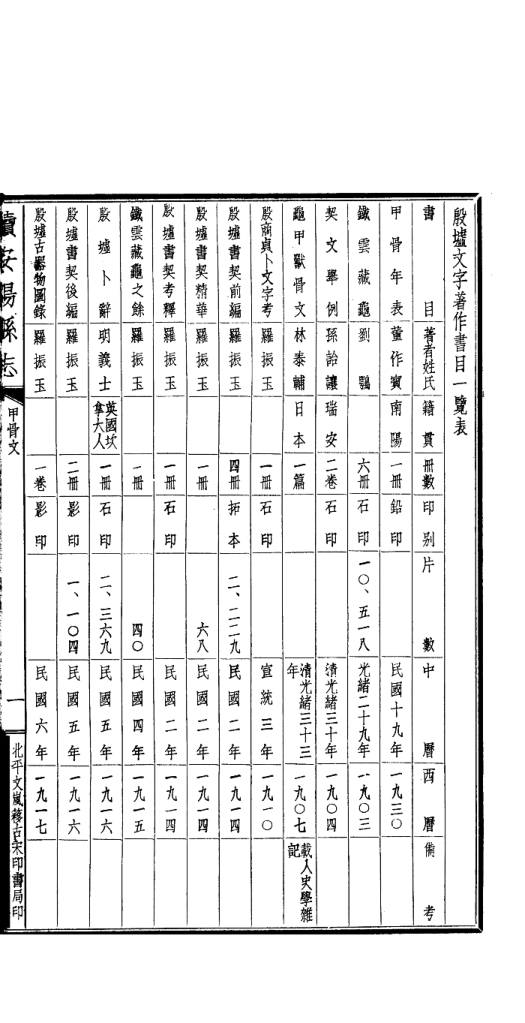 殷墟文字著作書目一覽表
書目 著者姓氏 籍貫 冊數 印別 片數 中曆 西曆 備考
甲骨年表 董作賓 南陽 一冊 鉛印 民國十九年 一九三〇
鐵雲藏龜 劉鶚 六冊 石印 一〇、五一八 光緒二十九年 一九〇三
契文舉例 孫詒讓 瑞安 二卷 石印 清光緒三十年 一九〇四
龜甲獸骨文 林泰輔 日本 一篇 清光緒三十三年 一九〇七 載入史學雜記
殷商貞卜文字考 羅振玉 一冊 石印 宣統三年 一九一〇
殷墟書契前編 羅振玉 四冊 拓本 二、二二九 民國二年 一九一四
殷墟書契精華 羅振玉 一冊 六八 民國二年 一九一四
殷墟書契考釋 羅振玉 一冊 石印 民國二年 一九一四
鐵雲藏龜之餘 羅振玉 一冊 四〇 民國四年 一九一五
殷墟卜辭 明義士 英國坎拿大人 一冊 石印 二、三六九 民國五年 一九一六
殷墟書契後編 羅振玉 二冊 影印 一、一〇四 民國五年 一九一六
殷墟古器物圖錄 羅振玉 一卷 影印 民國六年 一九一七
續安陽縣志 甲骨文 一 北平文嵐簃古宋印書局印